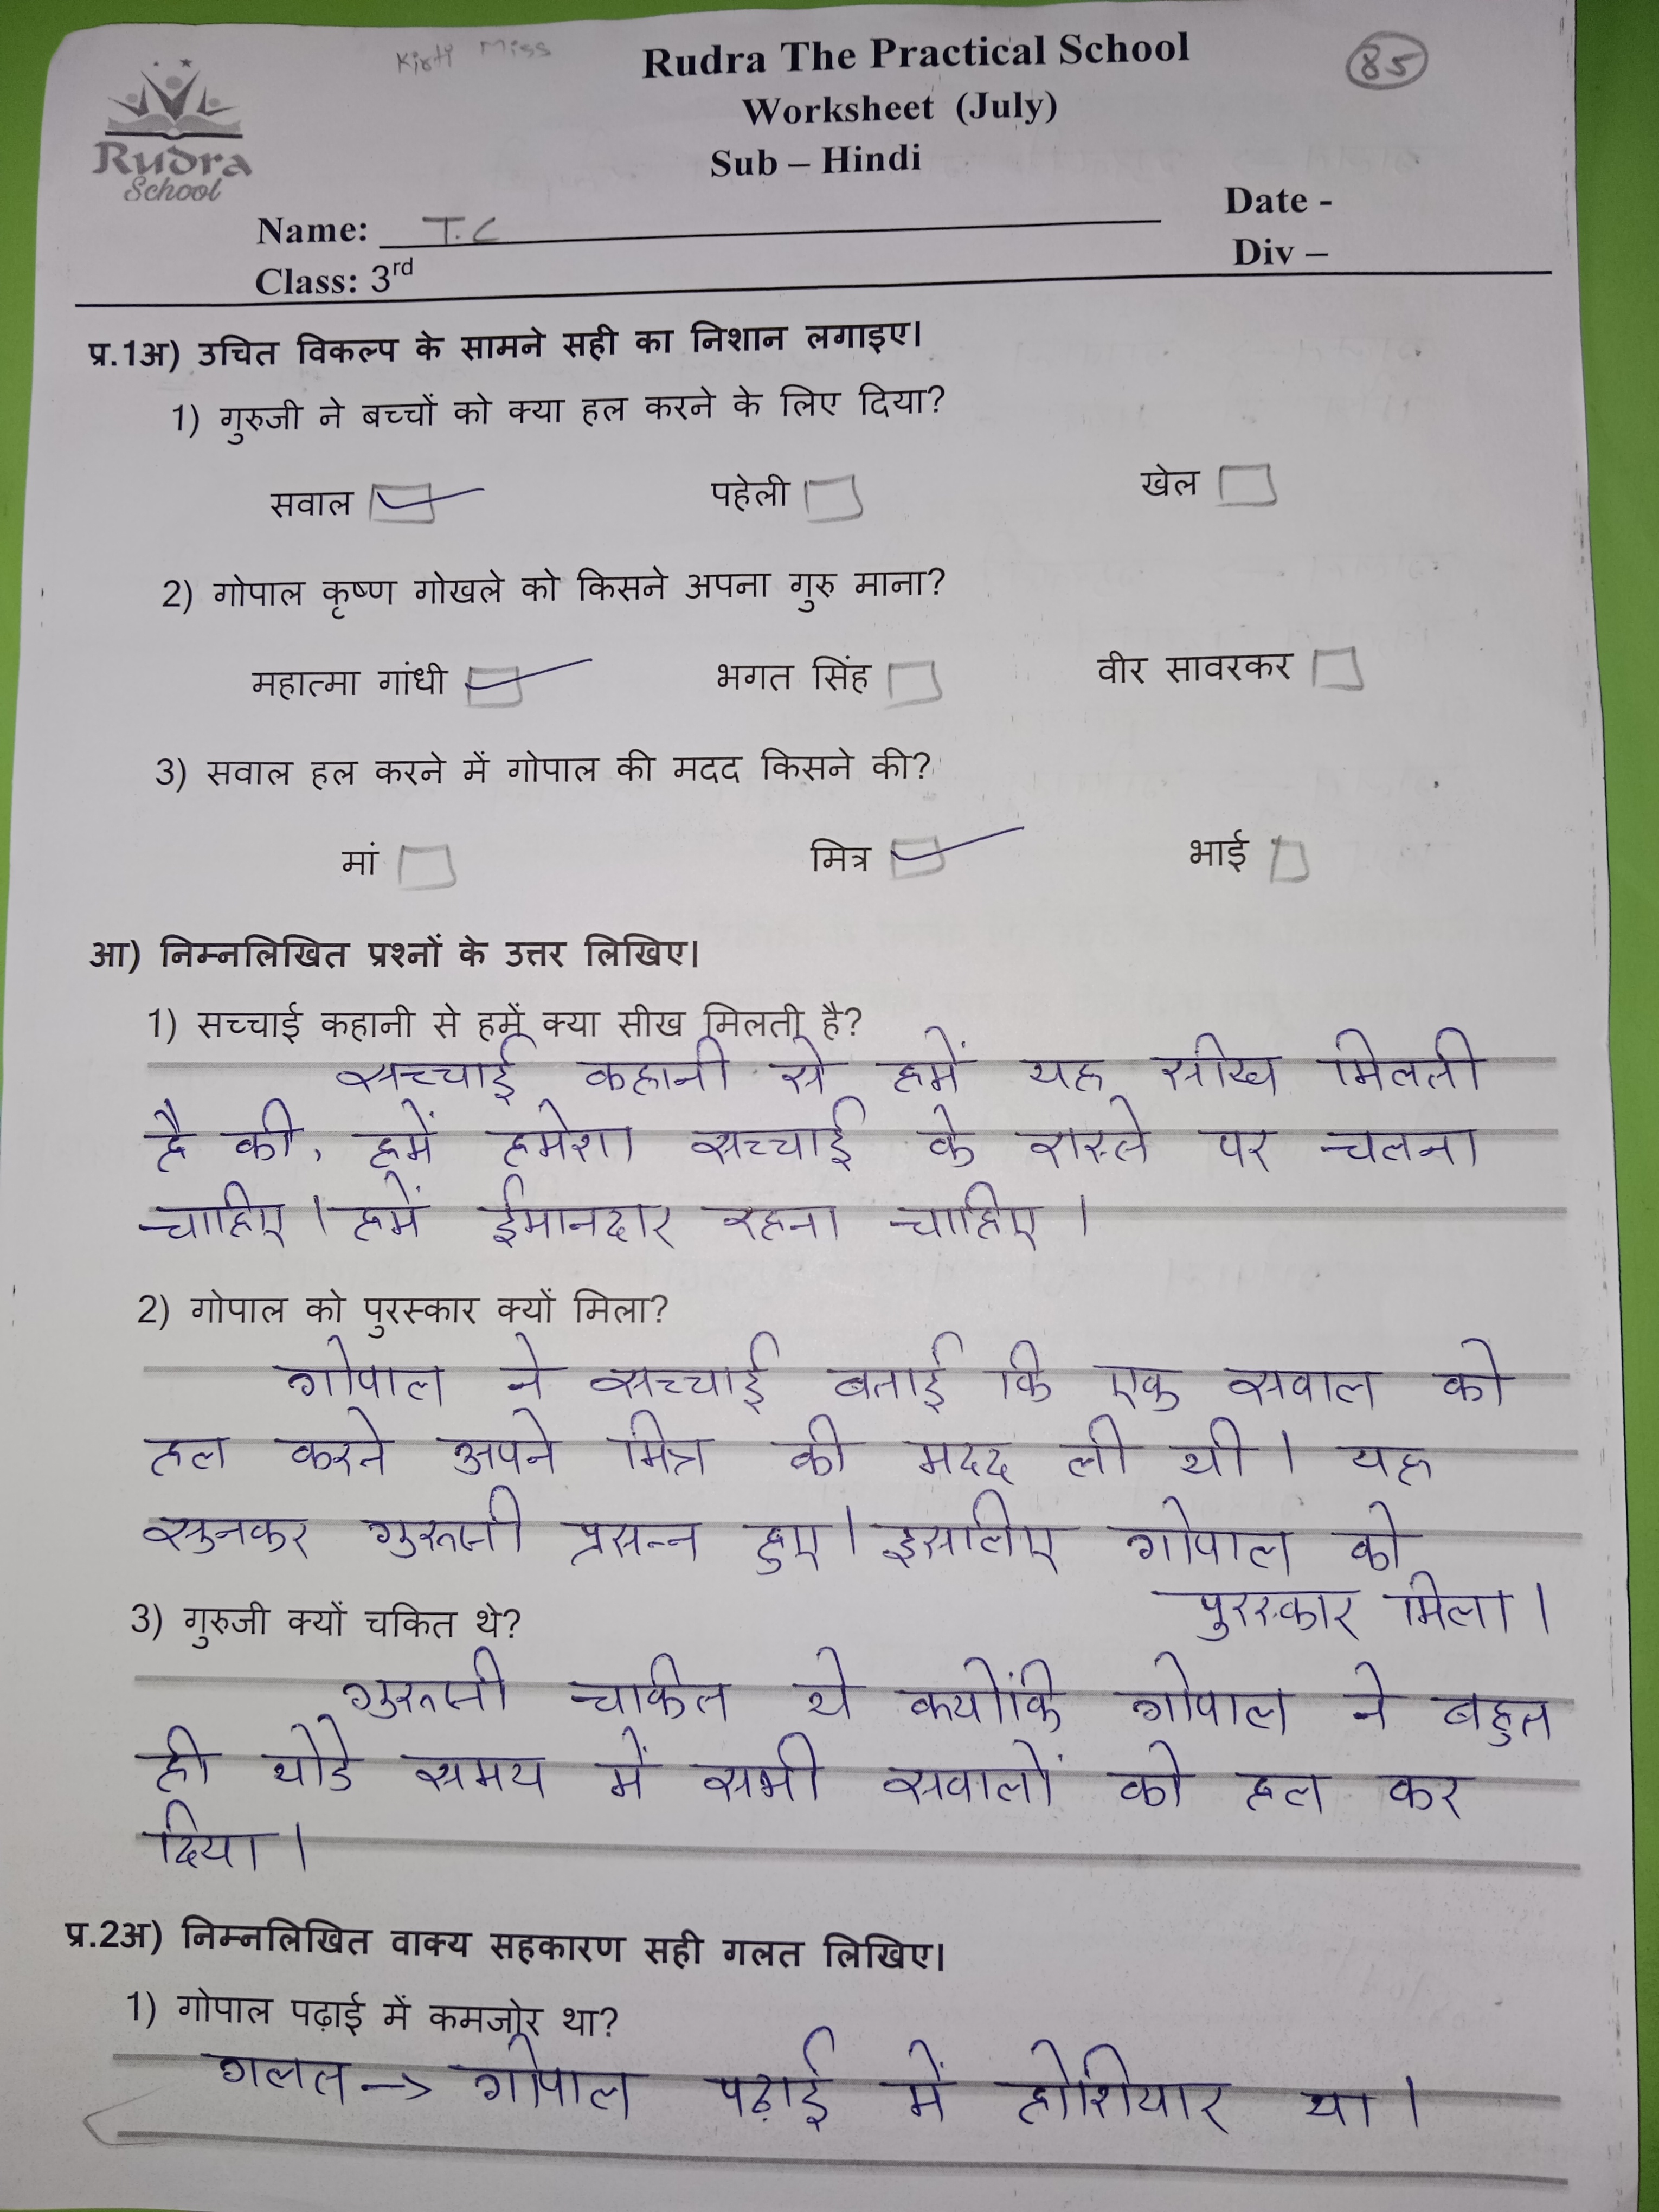 Kirti Miss
Rudra The Practical School
85
Worksheet (July)
Sub – Hindi
Rudra
School
Name: T.C
Date -
Class: 3rd
Div –
प्र.1अ) उचित विकल्प के सामने सही का निशान लगाइए।
1) गुरुजी ने बच्चों को क्या हल करने के लिए दिया?
सवाल पहेली खेल
2) गोपाल कृष्ण गोखले को किसने अपना गुरु माना?
महात्मा गांधी भगत सिंह वीर सावरकर
3) सवाल हल करने में गोपाल की मदद किसने की?
मां मित्र भाई
आ) निम्नलिखित प्रश्नों के उत्तर लिखिए।
1) सच्चाई कहानी से हमें क्या सीख मिलती है?
सच्चाई कहानी से हमें यह सीख मिलती
है की, हमें हमेशा सच्चाई के रास्ते पर चलना
चाहिए। हमें ईमानदार रहना चाहिए।
2) गोपाल को पुरस्कार क्यों मिला?
गोपाल ने सच्चाई बताई कि एक सवाल को
हल करने अपने मित्र की मदद ली थी। यह
सुनकर गुरुजी प्रसन्न हुए। इसलिए गोपाल को
पुरस्कार मिला।
3) गुरुजी क्यों चकित थे?
गुरुजी चकित थे क्योंकि गोपाल ने बहुत
ही थोडे समय में सभी सवालों को हल कर
दिया।
प्र.2अ) निम्नलिखित वाक्य सहकारण सही गलत लिखिए।
1) गोपाल पढ़ाई में कमजोर था?
गलत -> गोपाल पढ़ाई में होशियार था।